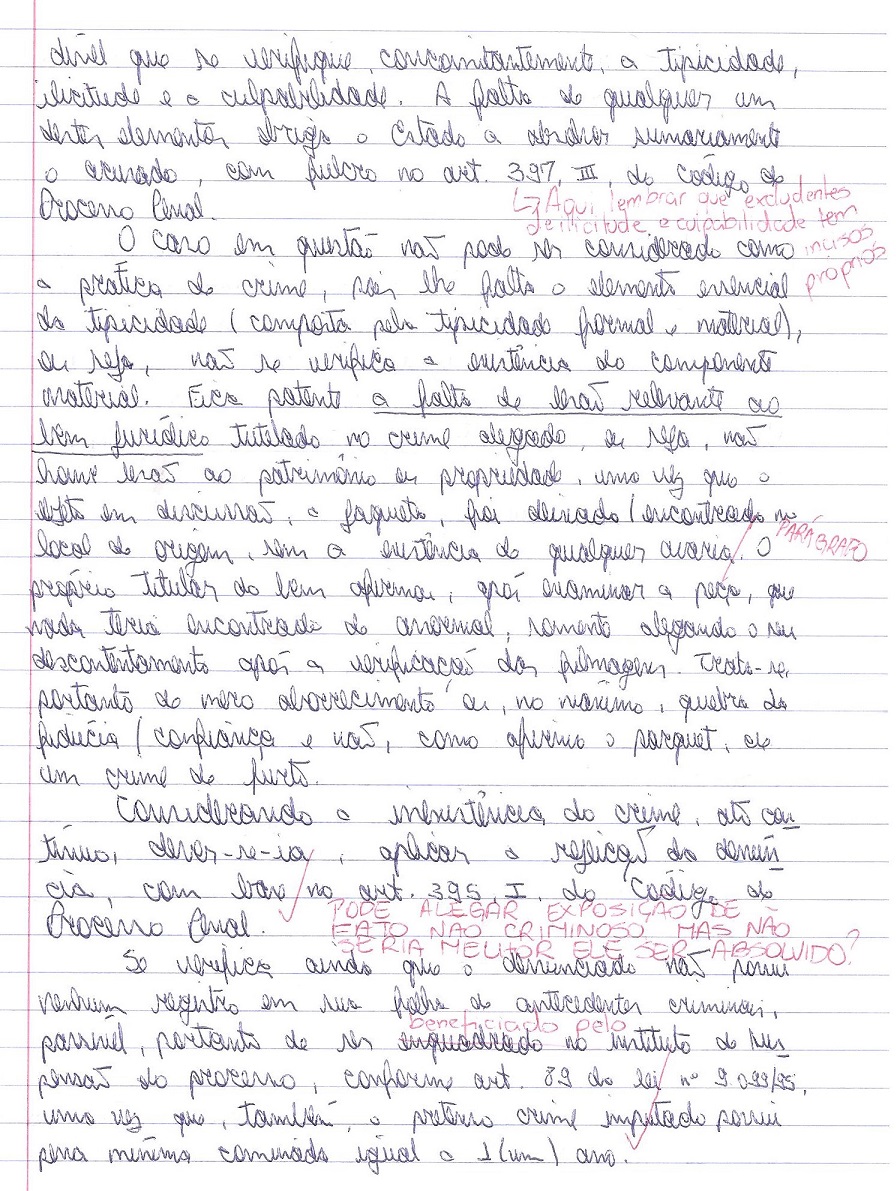 dível que se verifique, concomitantemente, a tipicidade,
ilicitude e a culpabilidade. A falta de qualquer um
destes elementos obriga o Estado a absolver sumariamente
o acusado, com fulcro no art. 397, III, do Código de
Processo Penal.
↳ Aqui, lembrar que excludentes
de ilicitude e culpabilidade tem
incisos
próprios
O caso em questão não pode ser considerado como
a prática de crime, pois lhe falta o elemento essencial
da tipicidade (composta pela tipicidade formal e material),
ou seja, não se verifica a existência do componente
material. Fica patente a falta de lesão relevante ao
bem jurídico tutelado no crime alegado, ou seja, não
houve lesão ao patrimônio ou propriedade, uma vez que o
objeto em discussão, a jaqueta, foi deixado/encontrado no
local de origem, sem a existência de qualquer avaria. O
PARÁGRAFO
próprio titular do bem afirmou, após examinar a peça, que
nada teria encontrado de anormal, somente alegando o seu
descontentamento após a verificação das filmagens. Trata-se,
portanto de mero aborrecimento ou, no máximo, quebra da
fidúcia/confiança e não, como afirma o parquet, de
um crime de furto.
Considerando a inexistência do crime, ato con
tínuo, dever-se-ia, aplicar a rejeição da denún
cia, com base no art. 395, I, do Código de
Processo Penal.
PODE ALEGAR EXPOSIÇÃO DE
FATO NÃO CRIMINOSO, MAS NÃO
SERIA MELHOR ELE SER ABSOLVIDO?
Se verifica ainda que o denunciado não possui
nenhum registro em sua folha de antecedentes criminais,
beneficiado pelo
passível, portanto de ser enquadrado no instituto de sus
pensão do processo, conforme art. 89 da lei nº 9.099/95,
uma vez que, também, o pretenso crime imputado possui
pena mínima cominada igual a 1 (um) ano.